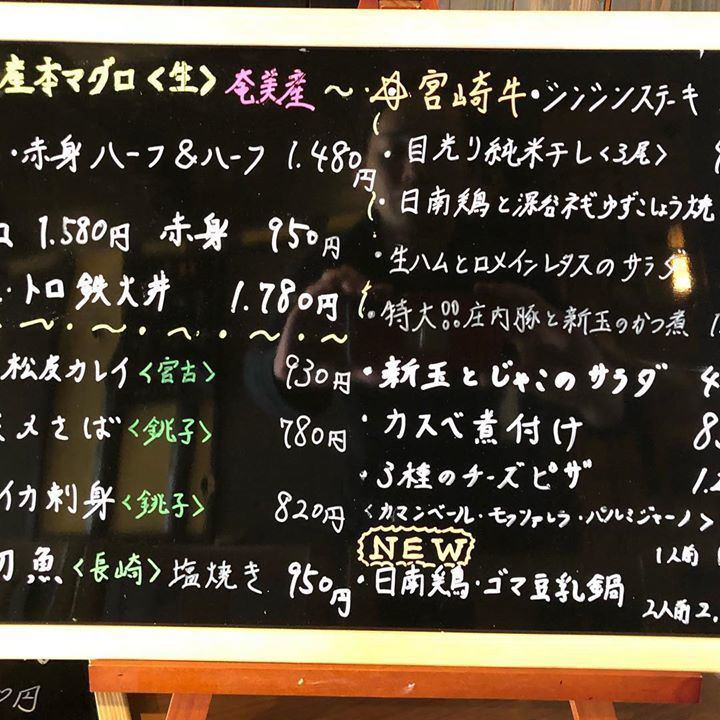 産本マグロ<生> 奄美産
・赤身ハーフ&ハーフ 1.480円
ロ 1.580円 赤身 950円
・トロ鉄火丼 1.780円
松皮カレイ<宮古> 930円
〆さば<銚子> 780円
イカ刺身<銚子> 820円
魚<長崎>塩焼き 950円
宮崎牛・シンシンステーキ
・目光り純米干し<3尾>
・日南鶏と深谷ネギゆずこしょう焼
・生ハムとロメインレタスのサラダ
・特大!!庄内豚と新玉のかつ煮
・新玉とじゃこのサラダ 4
・カスベ煮付け 8
・3種のチーズピザ 1.
<カマンベール・モッツァレラ・パルミジャーノ>
NEW
1人前
・日南鶏・ゴマ豆乳鍋
2人前 2.
0円